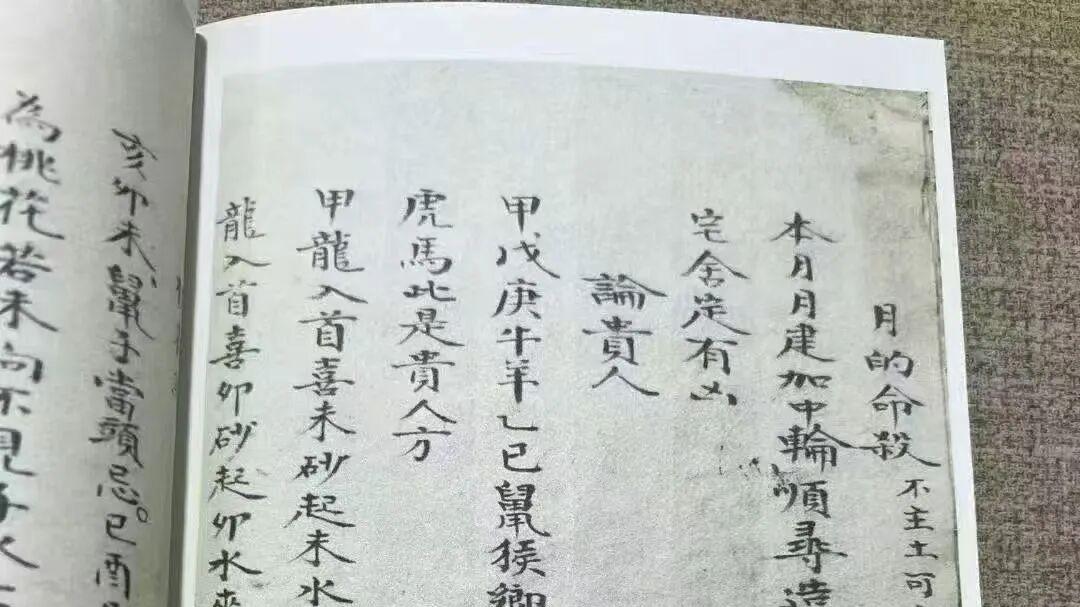 月的命殺 不主土可
本月月建加中輪順尋造
宅舍定有凶
論貴人
甲戊庚牛羊乙已鼠猴鄉
虎馬此是貴人方
甲龍入首喜未砂起未水
龍入首喜卯砂起卯水來
亥卯未鼠子當頭忌。巳酉
為桃花若未向不見子水